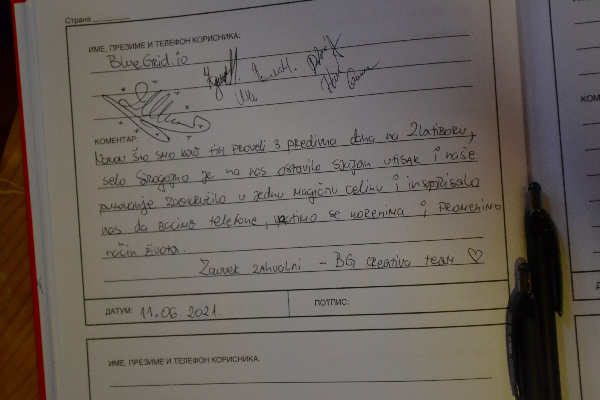 Страна
ИМЕ, ПРЕЗИМЕ И ТЕЛЕФОН КОРИСНИКА:
BlueGrid.io
КОМЕНТАР:
Nakon što smo kao tim proveli 3 predivna dana na Zlatiboru,
selo Sirogojno je na nas ostavilo sjajan utisak i naše
putovanje zaokružilo u jednu magičnu celinu i inspirisalo
nas da bacimo telefone, vratimo se korenima i promenimo
način života.
Zauvek zahvalni - BG creativa team ♡
ДАТУМ: 11.06.2021.
ПОТПИС:
ИМЕ, ПРЕЗИМЕ И ТЕЛЕФОН КОРИСНИКА: